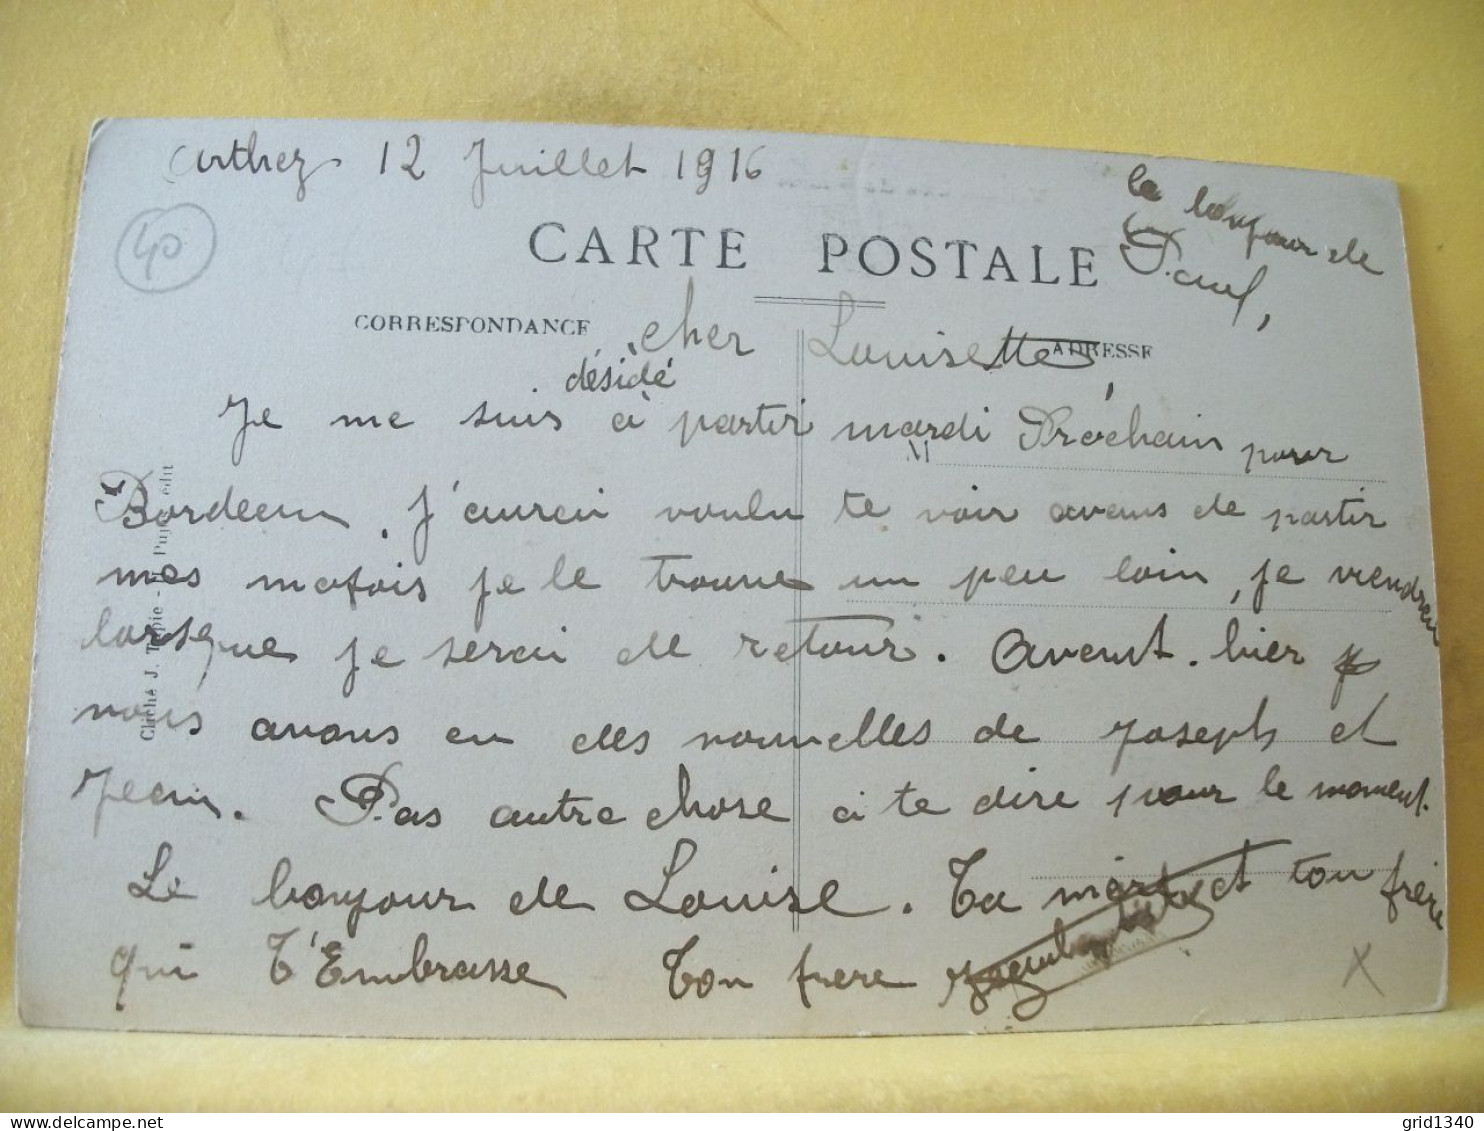 Arthez 12 Juillet 1916
le bonjour de
Paul,
40
CARTE POSTALE
CORRESPONDANCE
ADRESSE
cher Louisette,
désidé
Je me suis à partir mardi Prochain pour
M
Bordeau. J'aurai voulu te voir avans de partir
mes mafois je le trouve un peu loin, je viendrai
lorsque je serai de retour. Avent. hier
nous avons eu des nouvelles de Joseph et
Jean. Pas autre chose à te dire pour le moment.
Le bonjour de Louise. Ta mère et ton frère
qui t'Embrasse Ton frere
Cliché J. Tapie - Pujo édit
X
grid1340